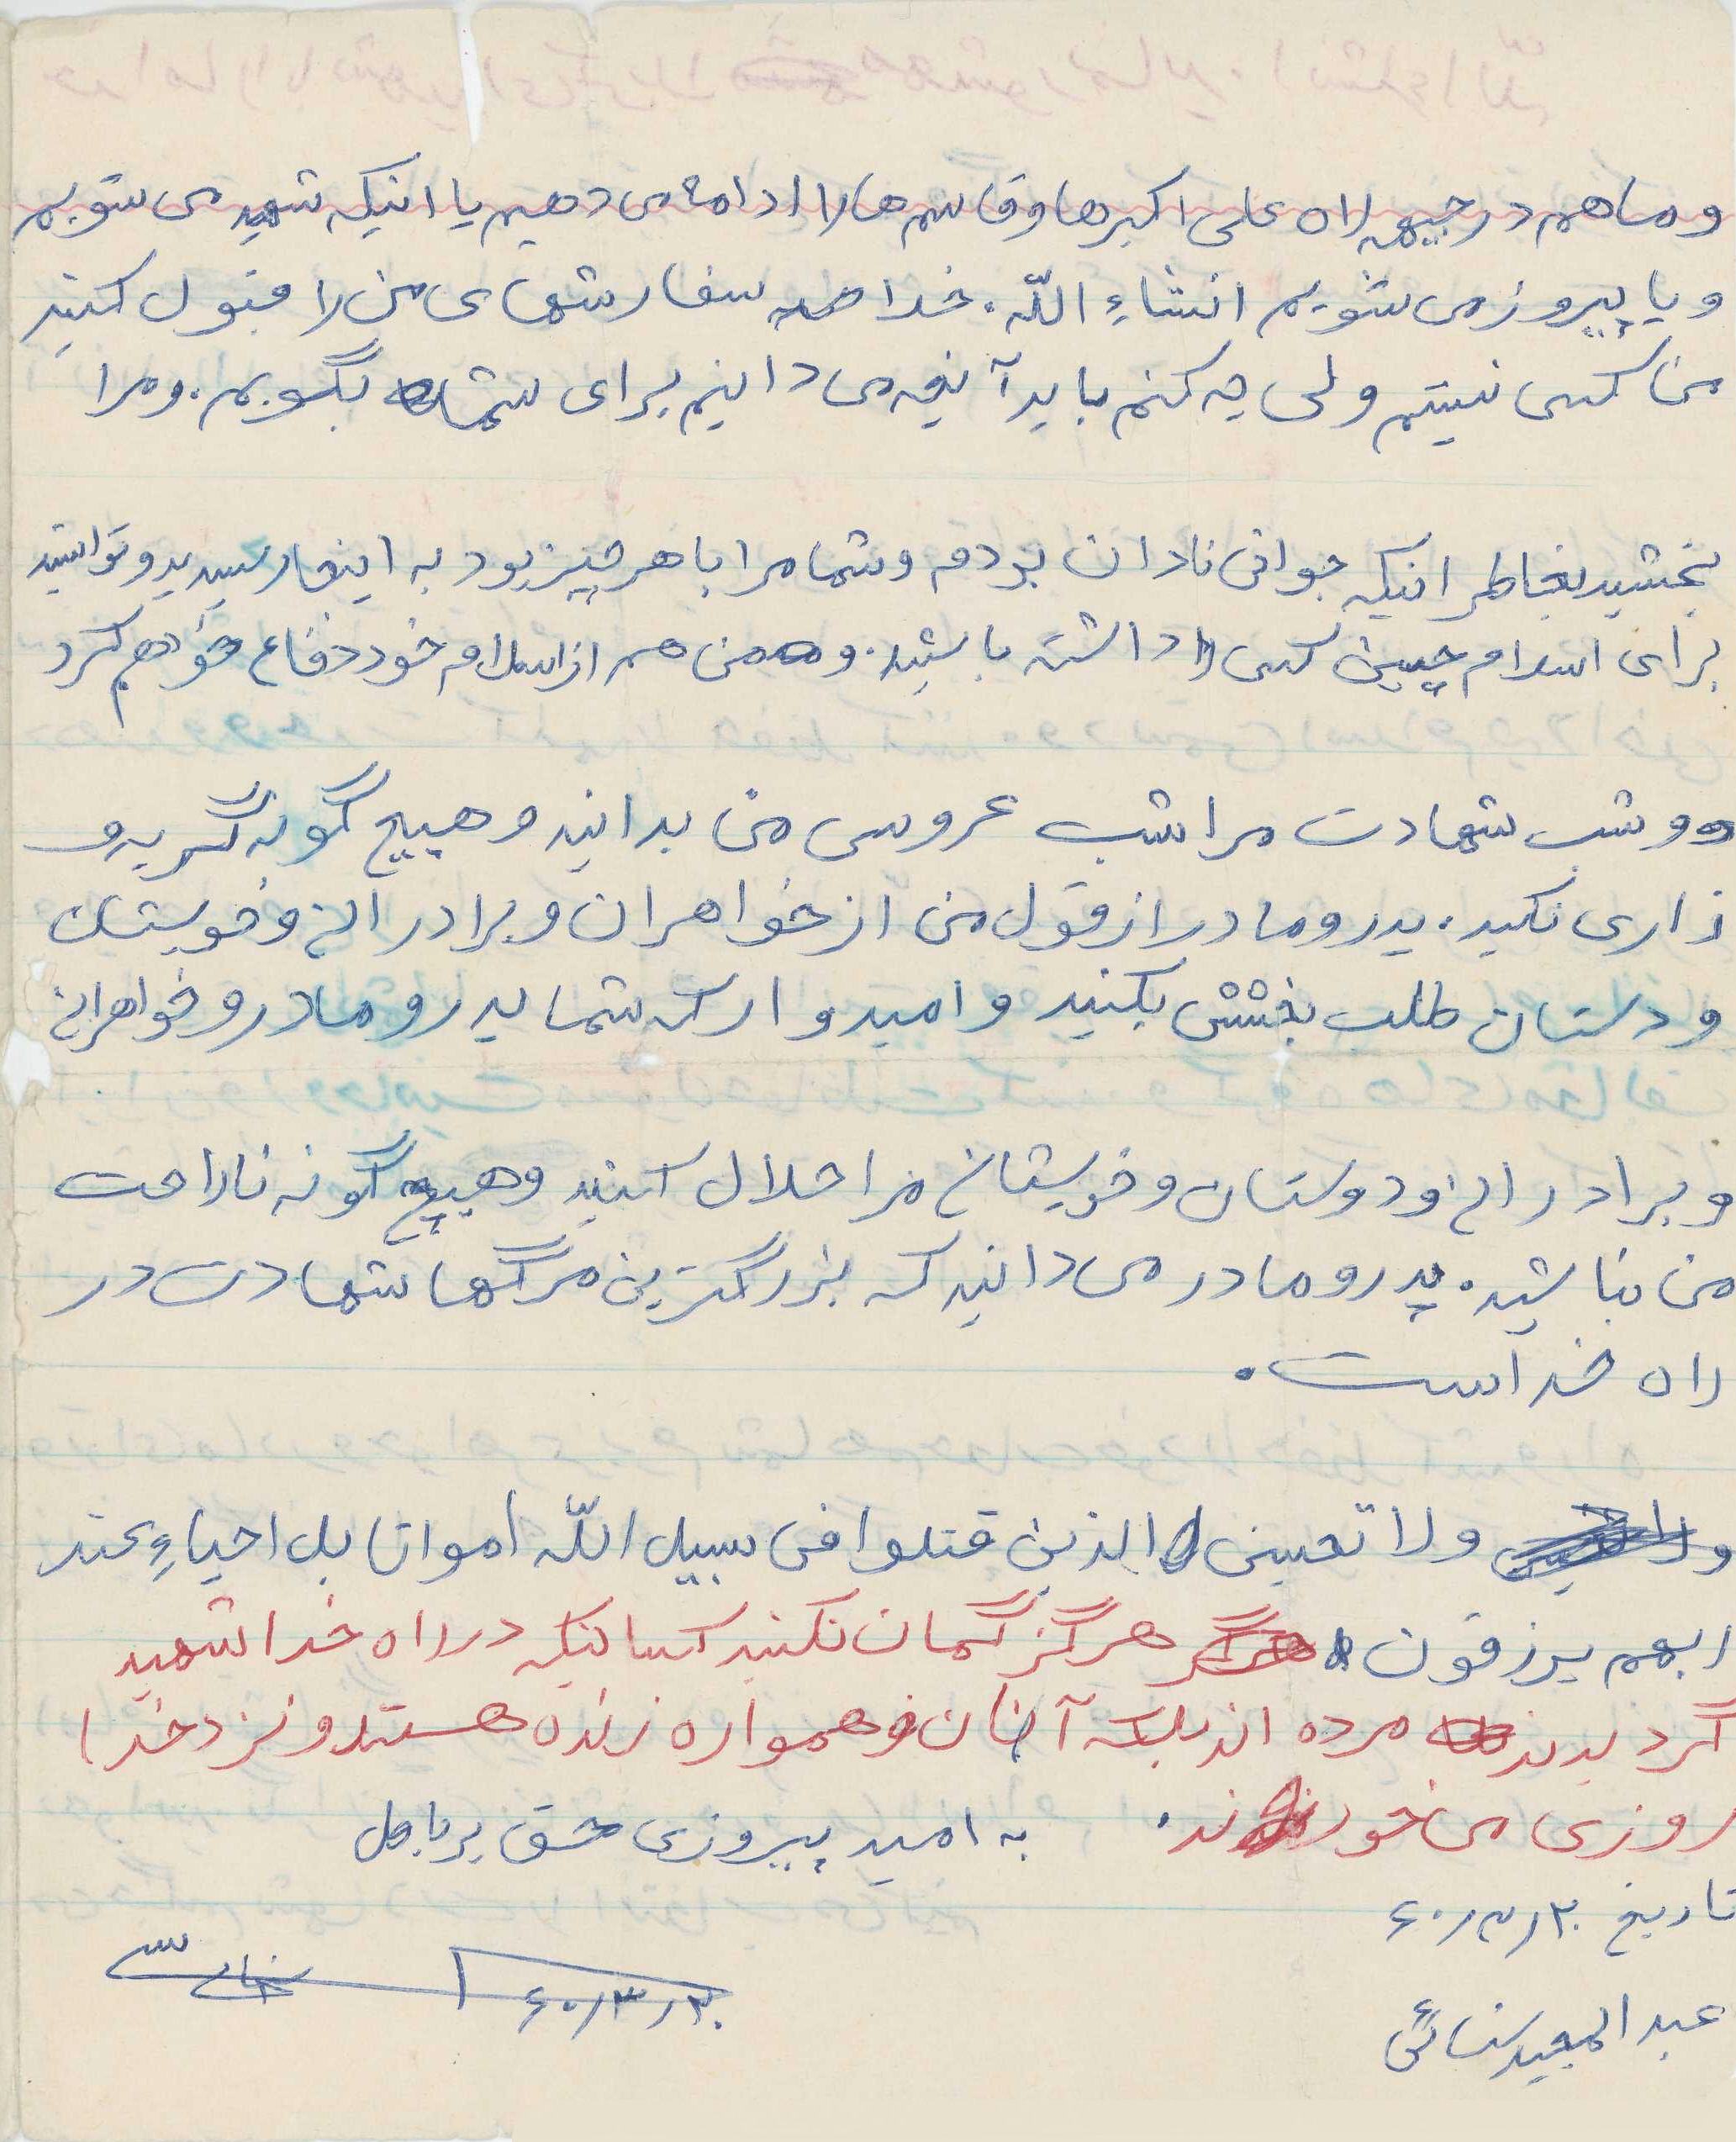 و ما هم در جبهه راه علی اکبرها و قاسم ها را ادامه می دهیم یا اینکه شهید می شویم
و یا پیروز می شویم انشاءِ اللّه. خدا سفارشهای من را قبول کنید
من کسی نیستم ولی چه کنم باید آنچه می دانیم برای شما بگویم. و مرا
بخشید بخاطر اینکه جوانی نادان بودم و شما مرا با هر چیز بود به اینجا رسیدید و توانستید
برای اسلام چنین کسی را داشته باشید. و من هم از اسلام خود دفاع خواهم کرد
و شب شهادت مرا شب عروسی من بدانید و هیچ گونه گریه و
زاری نکید. پدر و مادر از قول من از خواهران و برادرانم و خویشان
و دستان طلب بخشش بکنید و امیدوارکه شما پدر و مادر و خواهرانم
و برادرانم و دوستان و خویشانم مرا حلال کنید و هیچ گونه ناراحت
من نباشید. پدر و مادر می دانید که بزرگترین مرگها شهادت در
راه خداست.
ولا تحسبن الذین قتلوا فی سبیل اللّه امواتا بل احیاءِ عند
ربهم یرزقون هرگز گمان نکنید کسانیکه در راه خدا شهید
گردیدند مرده اند بلکه آنان همواره زنده هستند و نزد خدا
روزی می خورند.
به امید پیروزی حق بر باطل
تاریخ ۶۰/۳/۲۰
۶۰/۳/۲۰
عبدالمجید سنائی